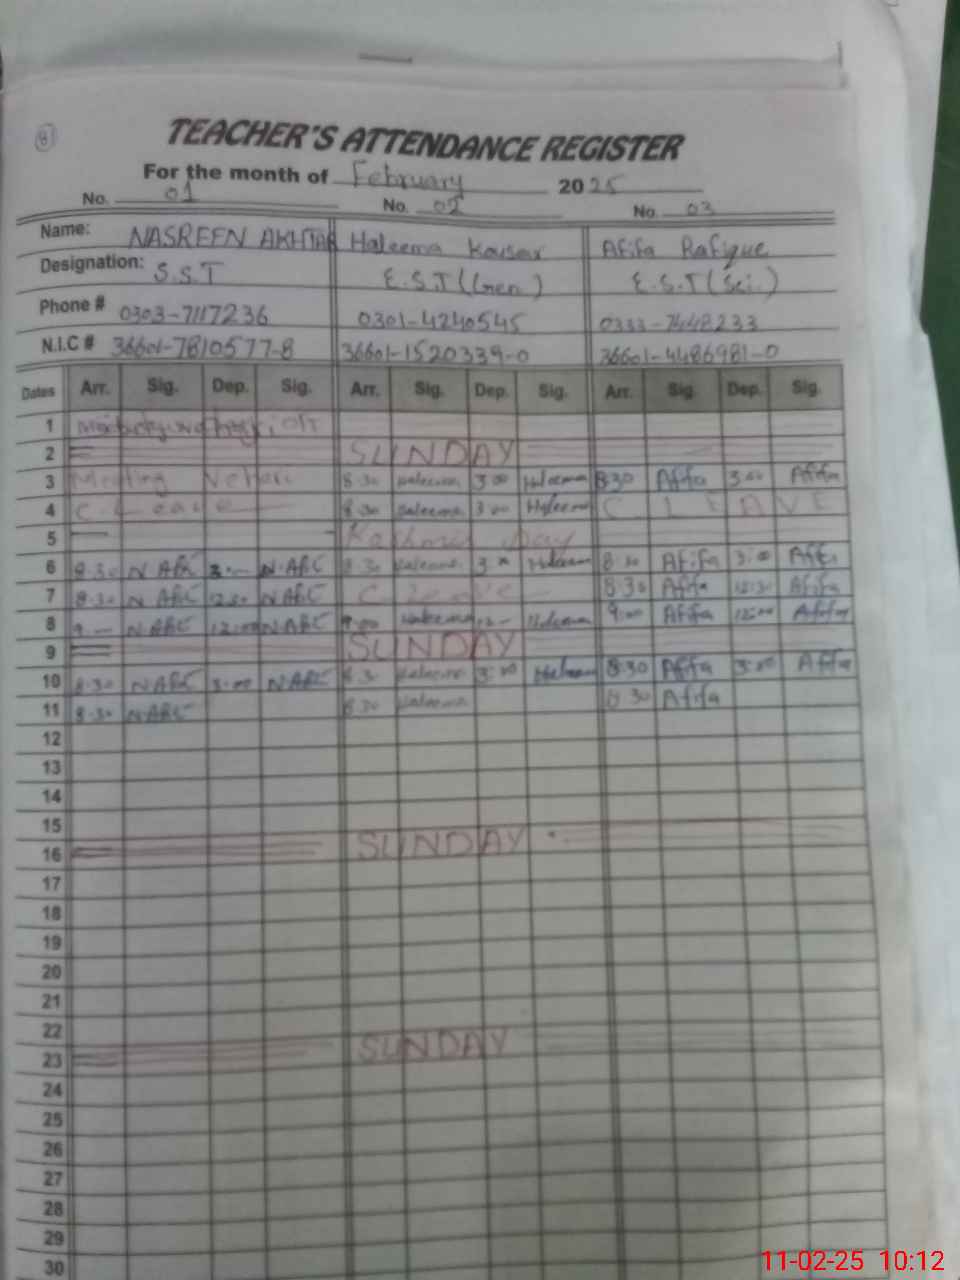 8
TEACHER'S ATTENDANCE REGISTER
For the month of February 2025
No. 01 No. 02 No. 03
Name: NASREEN AKHTAR Haleema Kousar Afifa Rafique
Designation: S.S.T E.S.T (Gen.) E.S.T (Sci.)
Phone # 0303-7117236 0301-4240545 0333-7448233
N.I.C # 36601-7810577-8 36601-1520339-0 36601-4486981-0
Dates Arr. Sig. Dep. Sig. Arr. Sig. Dep. Sig. Arr. Sig. Dep. Sig.
1
2 SUNDAY
3 Meeting Vehari 8:30 Haleema 3:00 Haleema 8:30 Afifa 3:00 Afifa
4 C. Leave 8:30 Haleema 3:00 Haleema C LEAVE
5 Kashmir Day
6 8:30 3:— 8:30 Haleema 3:00 Haleema 8:30 Afifa 3:00 Afifa
7 8:30 12:30 C Leave 8:30 Afifa 12:30 Afifa
8 9:— 12:00 9:00 Haleema 12:— Haleema 9:00 Afifa 12:00 Afifa
9 SUNDAY
10 8:30 3:00 8:30 Haleema 3:00 Haleema 8:30 Afifa 3:00 Afifa
11 8:30 8:30 Haleema 8:30 Afifa
12
13
14
15
16 SUNDAY
17
18
19
20
21
22
23 SUNDAY
24
25
26
27
28
29
30
11-02-25 10:12